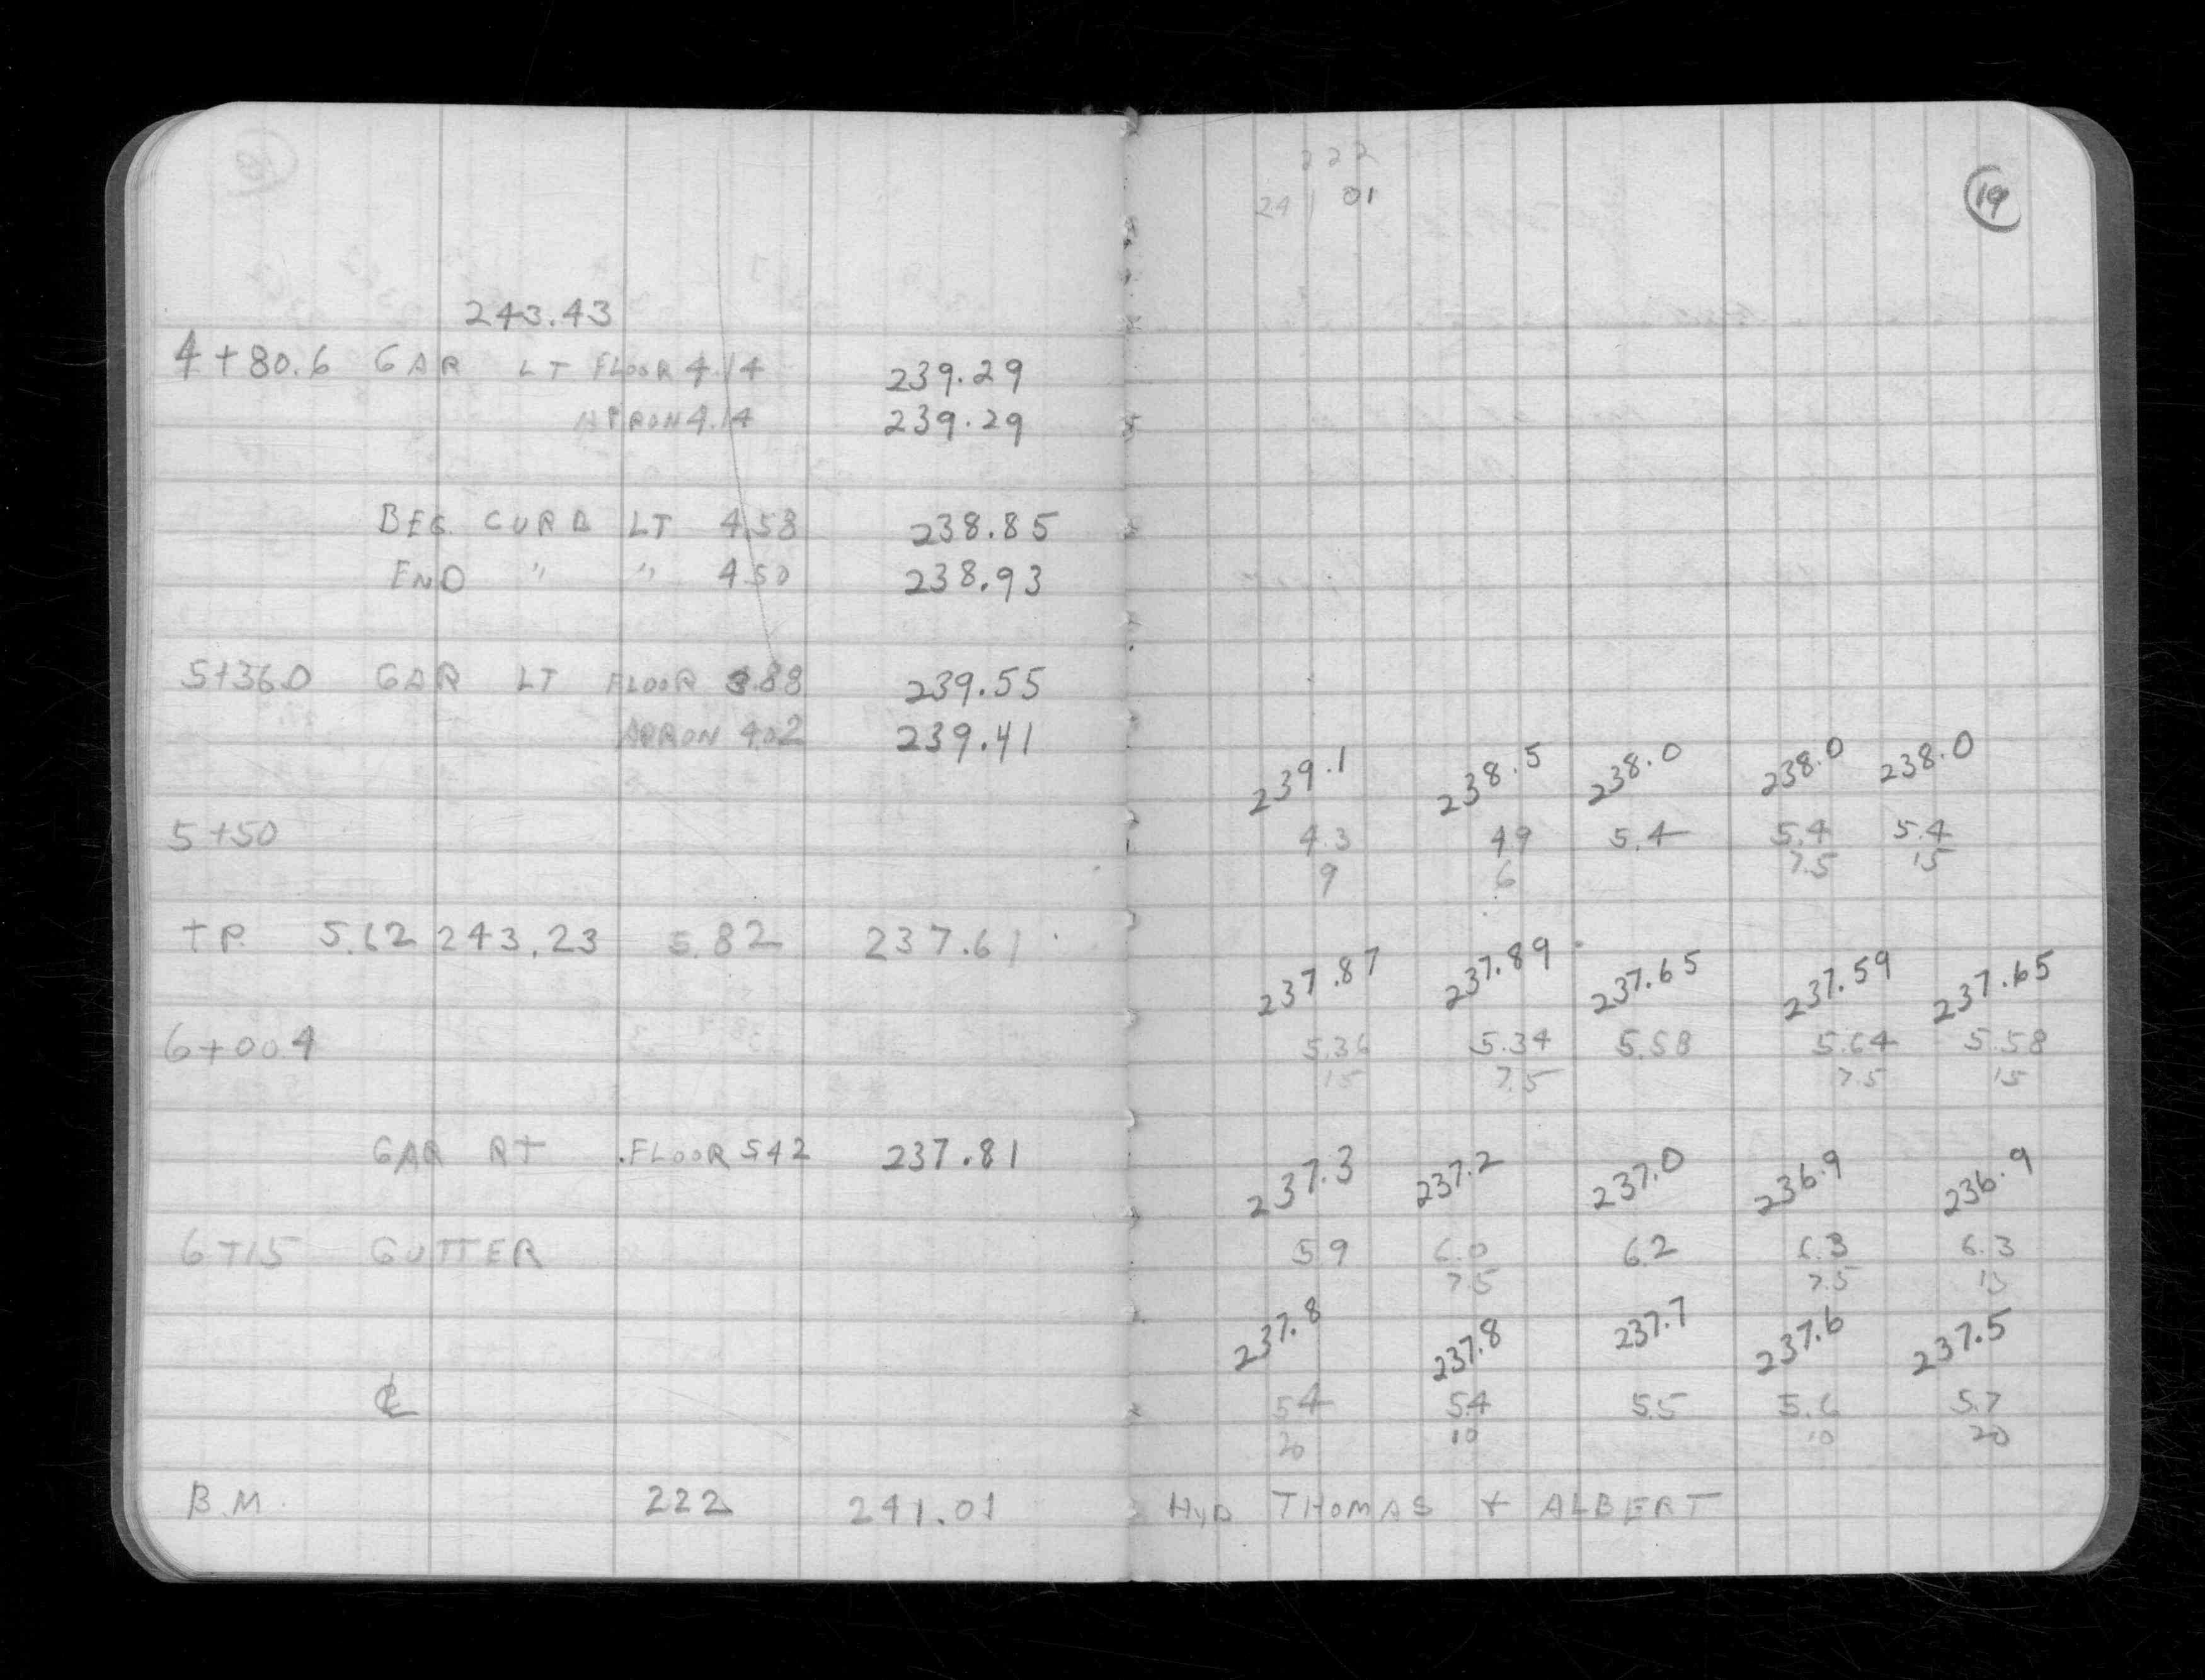 243.43
4+80.6 GAR LT FLOOR 4.14 239.29
APRON 4.14 239.29
BEG. CURB LT 4.58 238.85
END " " 4.50 238.93
5+36.0 GAR LT FLOOR 3.88 239.55
APRON 4.02 239.41
5+50
T.P. 5.62 243.23 5.82 237.61
6+00.4
GAR RT FLOOR 5.42 237.81
6+15 GUTTER
℄
B.M. 2.22 241.01
222
241 01
19
239.1 238.5 238.0 238.0 238.0
4.3 4.9 5.4 5.4 5.4
9 6 7.5 15
237.87 237.89 237.65 237.59 237.65
5.36 5.34 5.58 5.64 5.58
15 7.5 7.5 15
237.3 237.2 237.0 236.9 236.9
5.9 6.0 6.2 6.3 6.3
7.5 7.5 15
237.8 237.8 237.7 237.6 237.5
5.4 5.4 5.5 5.6 5.7
20 10 10 20
HYD THOMAS + ALBERT